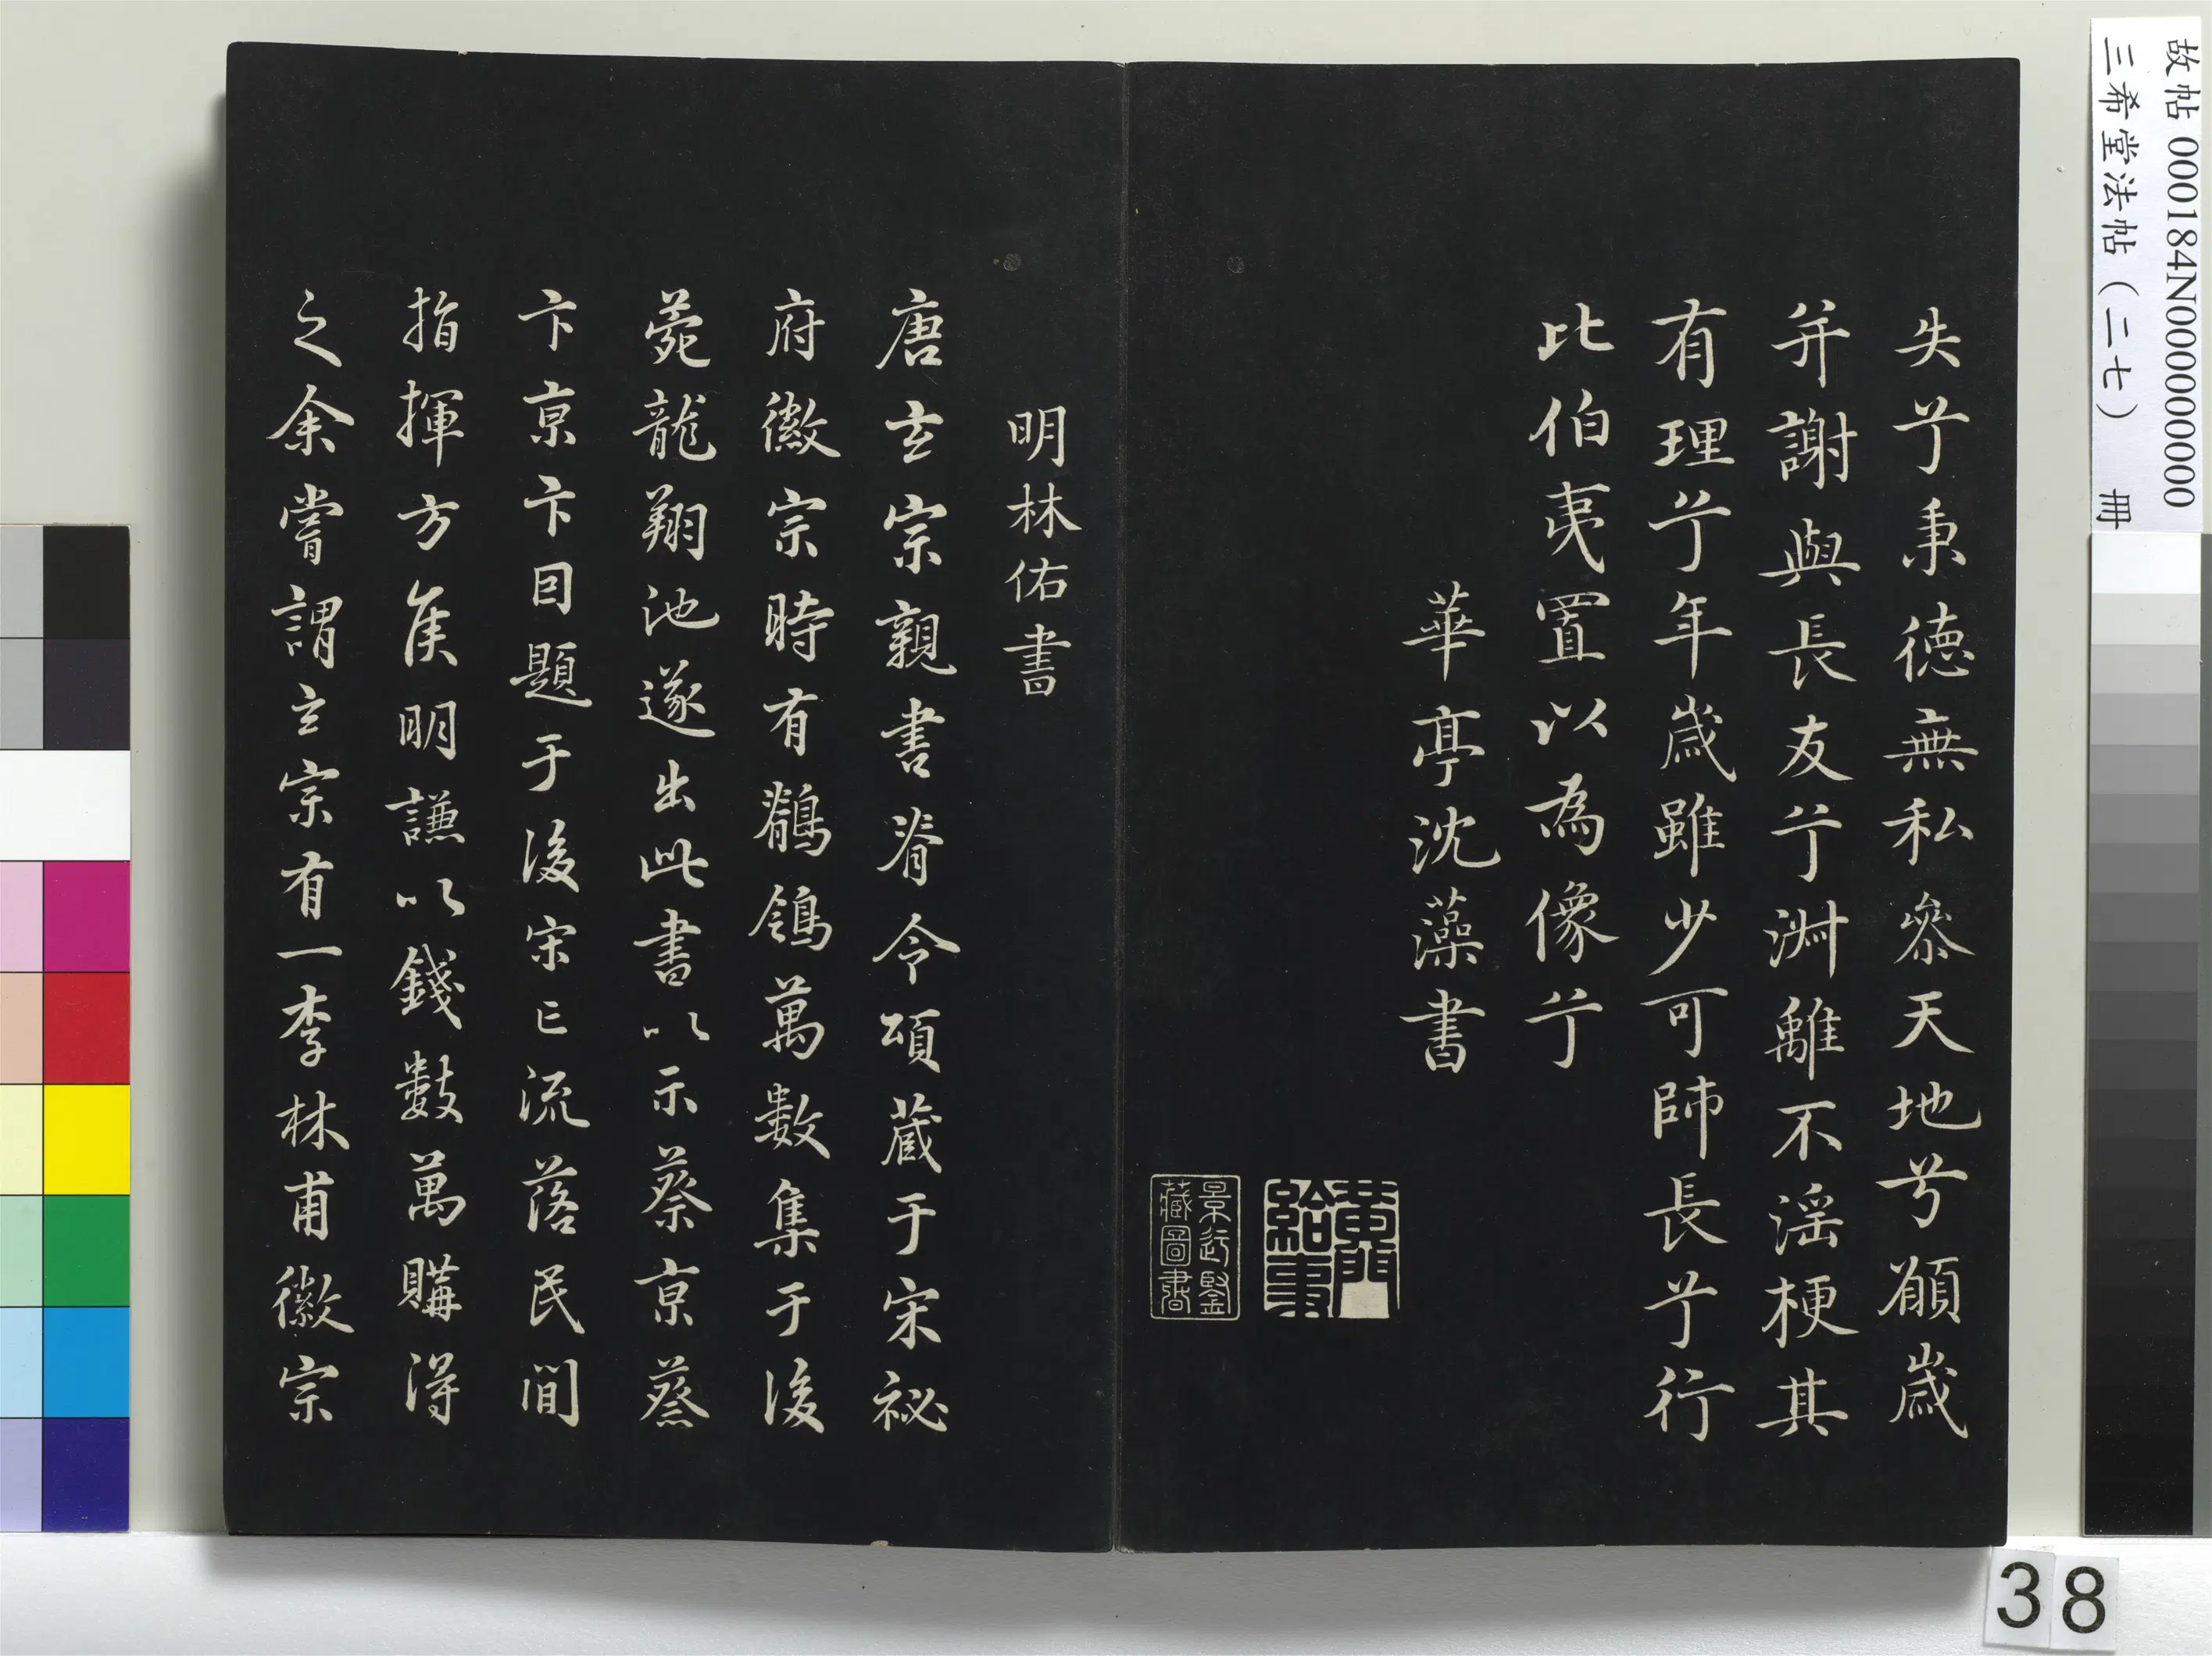 故帖 000184N000000000
三希堂法帖（二七） 冊
失兮秉德無私參天地兮願歲
并謝與長友兮淑離不淫梗其
有理兮年歲雖少可師長兮行
比伯夷置以為像兮
華亭沈藻書
黃門給事
景行堅藏圖書
明林佑書
唐玄宗親書脊令頌藏于宋祕
府徽宗時有鶺鴒萬數集于後
苑龍翔池遂出此書以示蔡京蔡
卞京卞因題于後宋亡流落民間
指揮方侯明謙以錢數萬購得
之余嘗謂玄宗有一李林甫徽宗
38